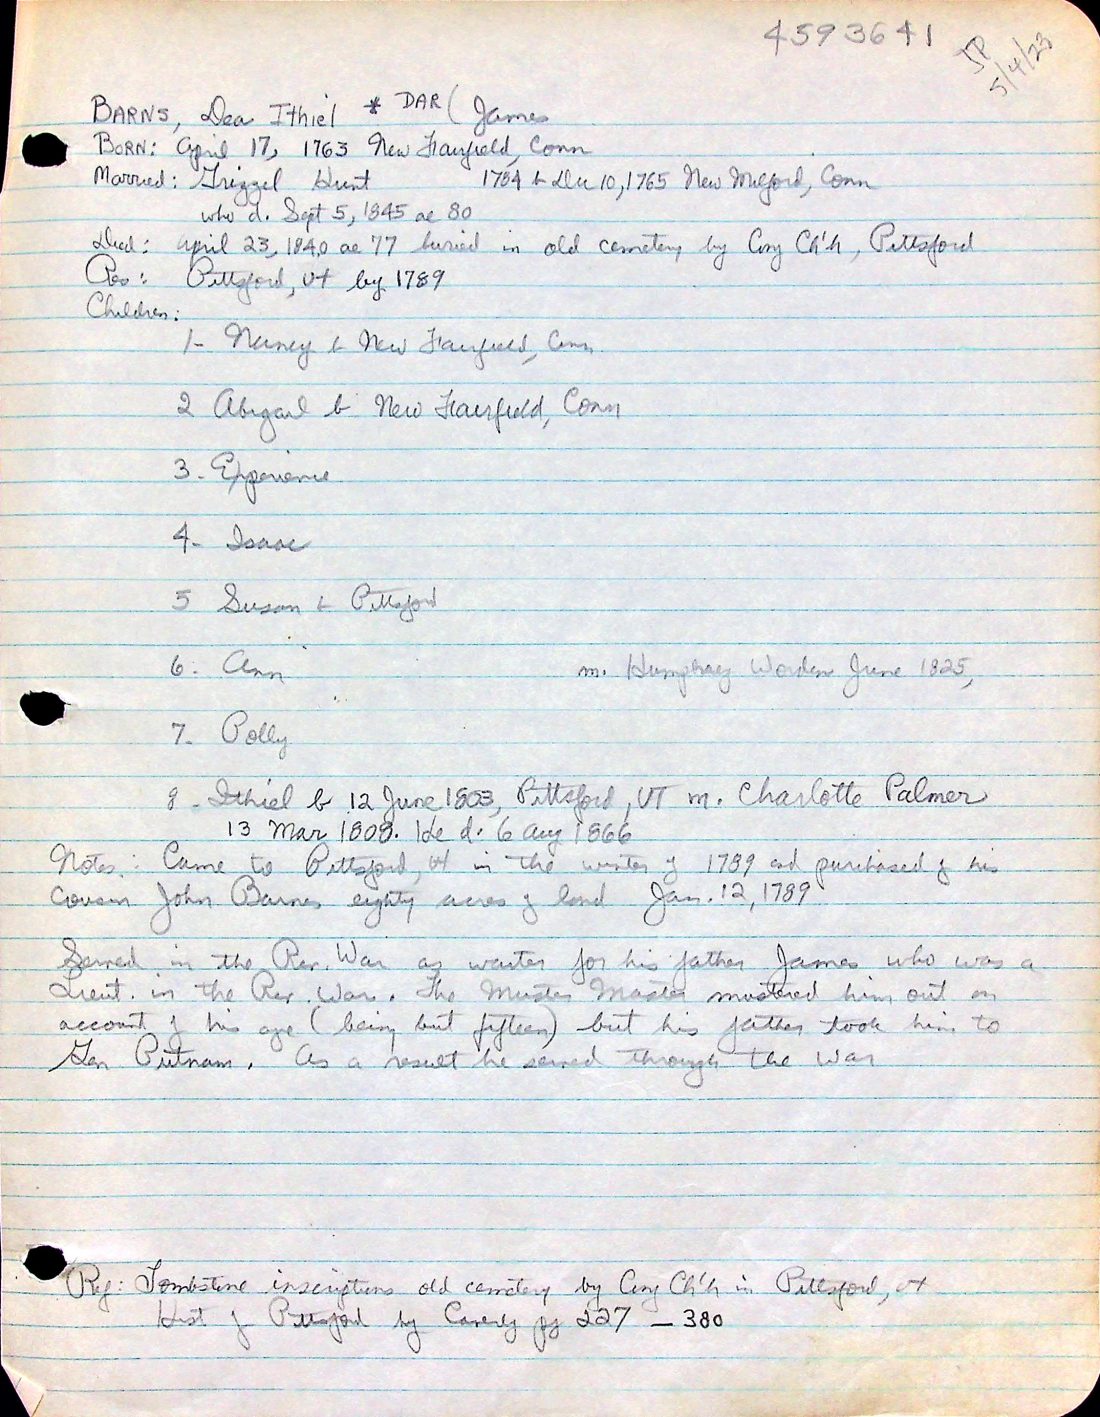 4593641
JP
5/4/23
BARNS, Dea Ithiel * DAR (James
BORN: April 17, 1763 New Fairfield, Conn
Married: Grizzel Hunt 1784 b Dec 10, 1765 New Milford, Conn
who d. Sept 5, 1845 ae 80
Died: April 23, 1840 ae 77 buried in old cemetery by Cong Ch'h, Pittsford
Res: Pittsford, Vt by 1789
Children:
1- Nancy b New Fairfield, Conn
2 Abigail b New Fairfield, Conn
3- Experience
4- Isaac
5 Susan b Pittsford
6- Ann m. Humphrey Worden June 1825,
7- Polly
8- Ithiel b 12 June 1803, Pittsford, VT m. Charlotte Palmer
13 Mar 1808. He d. 6 Aug 1866
Notes: Came to Pittsford, Vt in the winter of 1789 and purchased of his
cousin John Barnes eighty acres of land Jan. 12, 1789
Served in the Rev. War as waiter for his father James who was a
Lieut. in the Rev War. The Muster Master mustered him out on
account of his age (being but fifteen) but his father took him to
Gen Putnam. As a result he served through the War
Ref: Tombstone inscriptions old cemetery by Cong Ch'h in Pittsford, Vt
Hist of Pittsford by Caverly pg 227 - 380